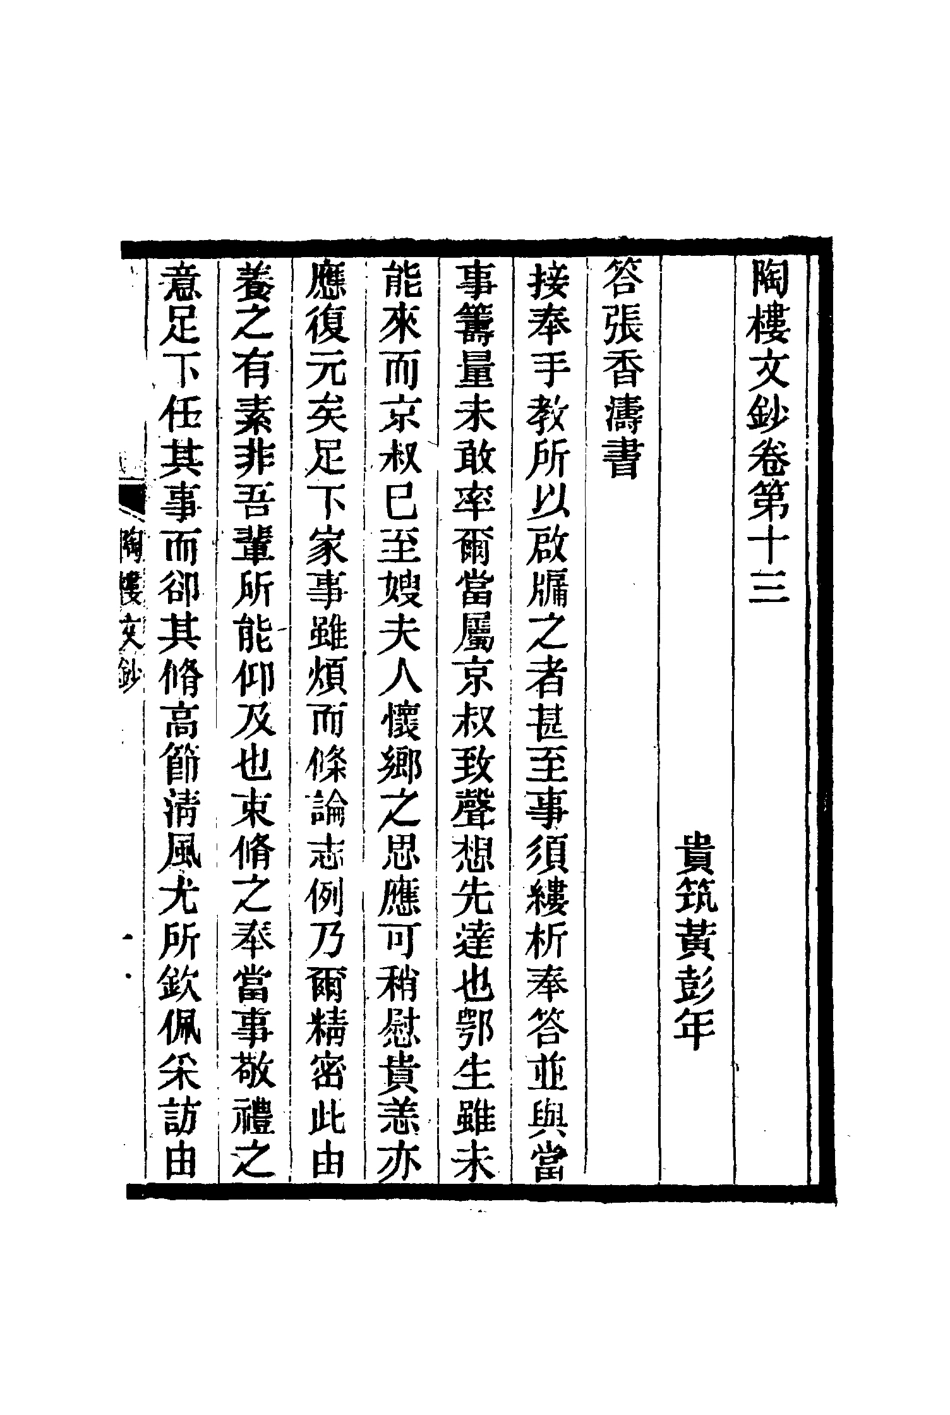 陶樓文鈔卷第十三
貴筑黃彭年
答張香濤書
接奉手教所以啟牖之者甚至事須縷析奉答並與當
事籌量未敢率爾當屬京叔致聲想先達也鄂生雖未
能來而京叔巳至嫂夫人懷鄉之思應可稍慰貴恙亦
應復元矣足下家事雖煩而條論志例乃爾精密此由
養之有素非吾輩所能仰及也束脩之奉當事敬禮之
意足下任其事而卻其脩高節淸風尤所欽佩采訪由
陶樓文鈔
一